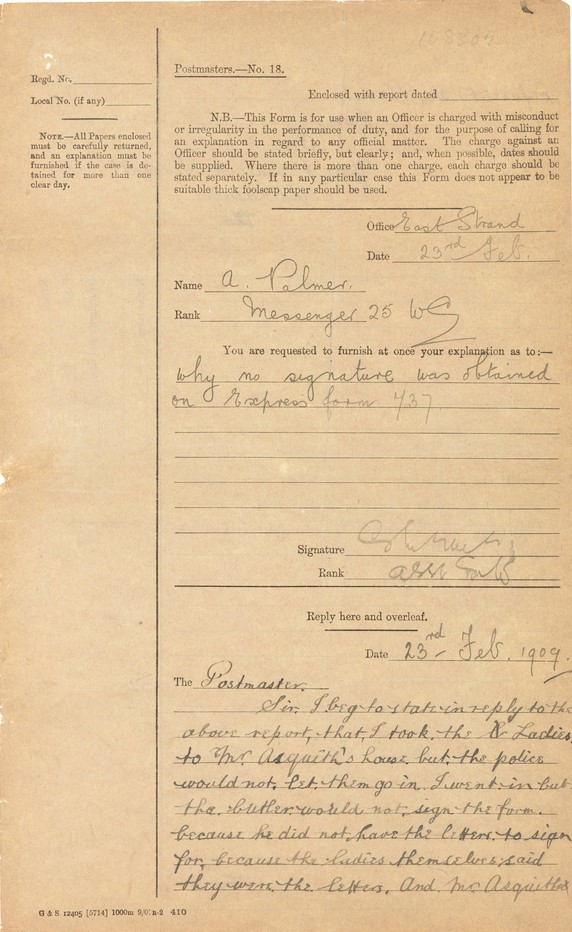 Postmasters.—No. 18.
Regd. No.
Local No. (if any)
Note.—All Papers enclosed
must be carefully returned,
and an explanation must be
furnished if the case is de-
tained for more than one
clear day.
Enclosed with report dated
N.B.—This Form is for use when an Officer is charged with misconduct
or irregularity in the performance of duty, and for the purpose of calling for
an explanation in regard to any official matter. The charge against an
Officer should be stated briefly, but clearly; and, when possible, dates should
be supplied. Where there is more than one charge, each charge should be
stated separately. If in any particular case this Form does not appear to be
suitable thick foolscap paper should be used.
Office East Strand
Date 23rd Feb.
Name A. Palmer.
Rank Messenger 25 W
You are requested to furnish at once your explanation as to:—
why no signature was obtained
on Express form 437
Signature
Rank Asst
Reply here and overleaf.
Date 23rd Feb. 1909.
The Postmaster.
Sir. I beg to state in reply to the
above report, that, I took the Ladies
to Mr. Asquith's house but the police
would not let them go in. I went in but
the butler would not sign the form.
because he did not have the letters to sign
for, because the ladies themselves said
they were the letters. And Mr Asquiths
G & S 12405 [5714] 1000m 410